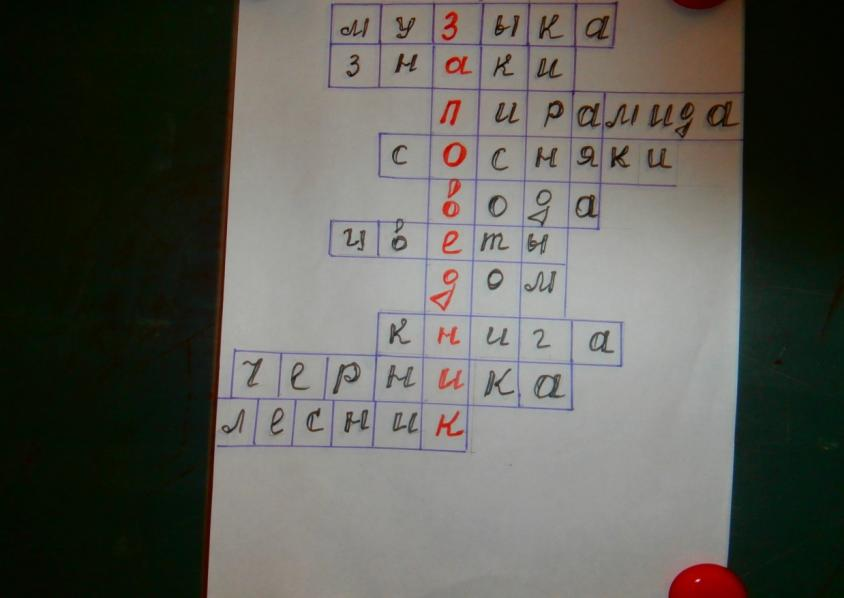 музыка
знаки
пирамида
сосняки
вода
цветы
дом
книга
черника
лесник